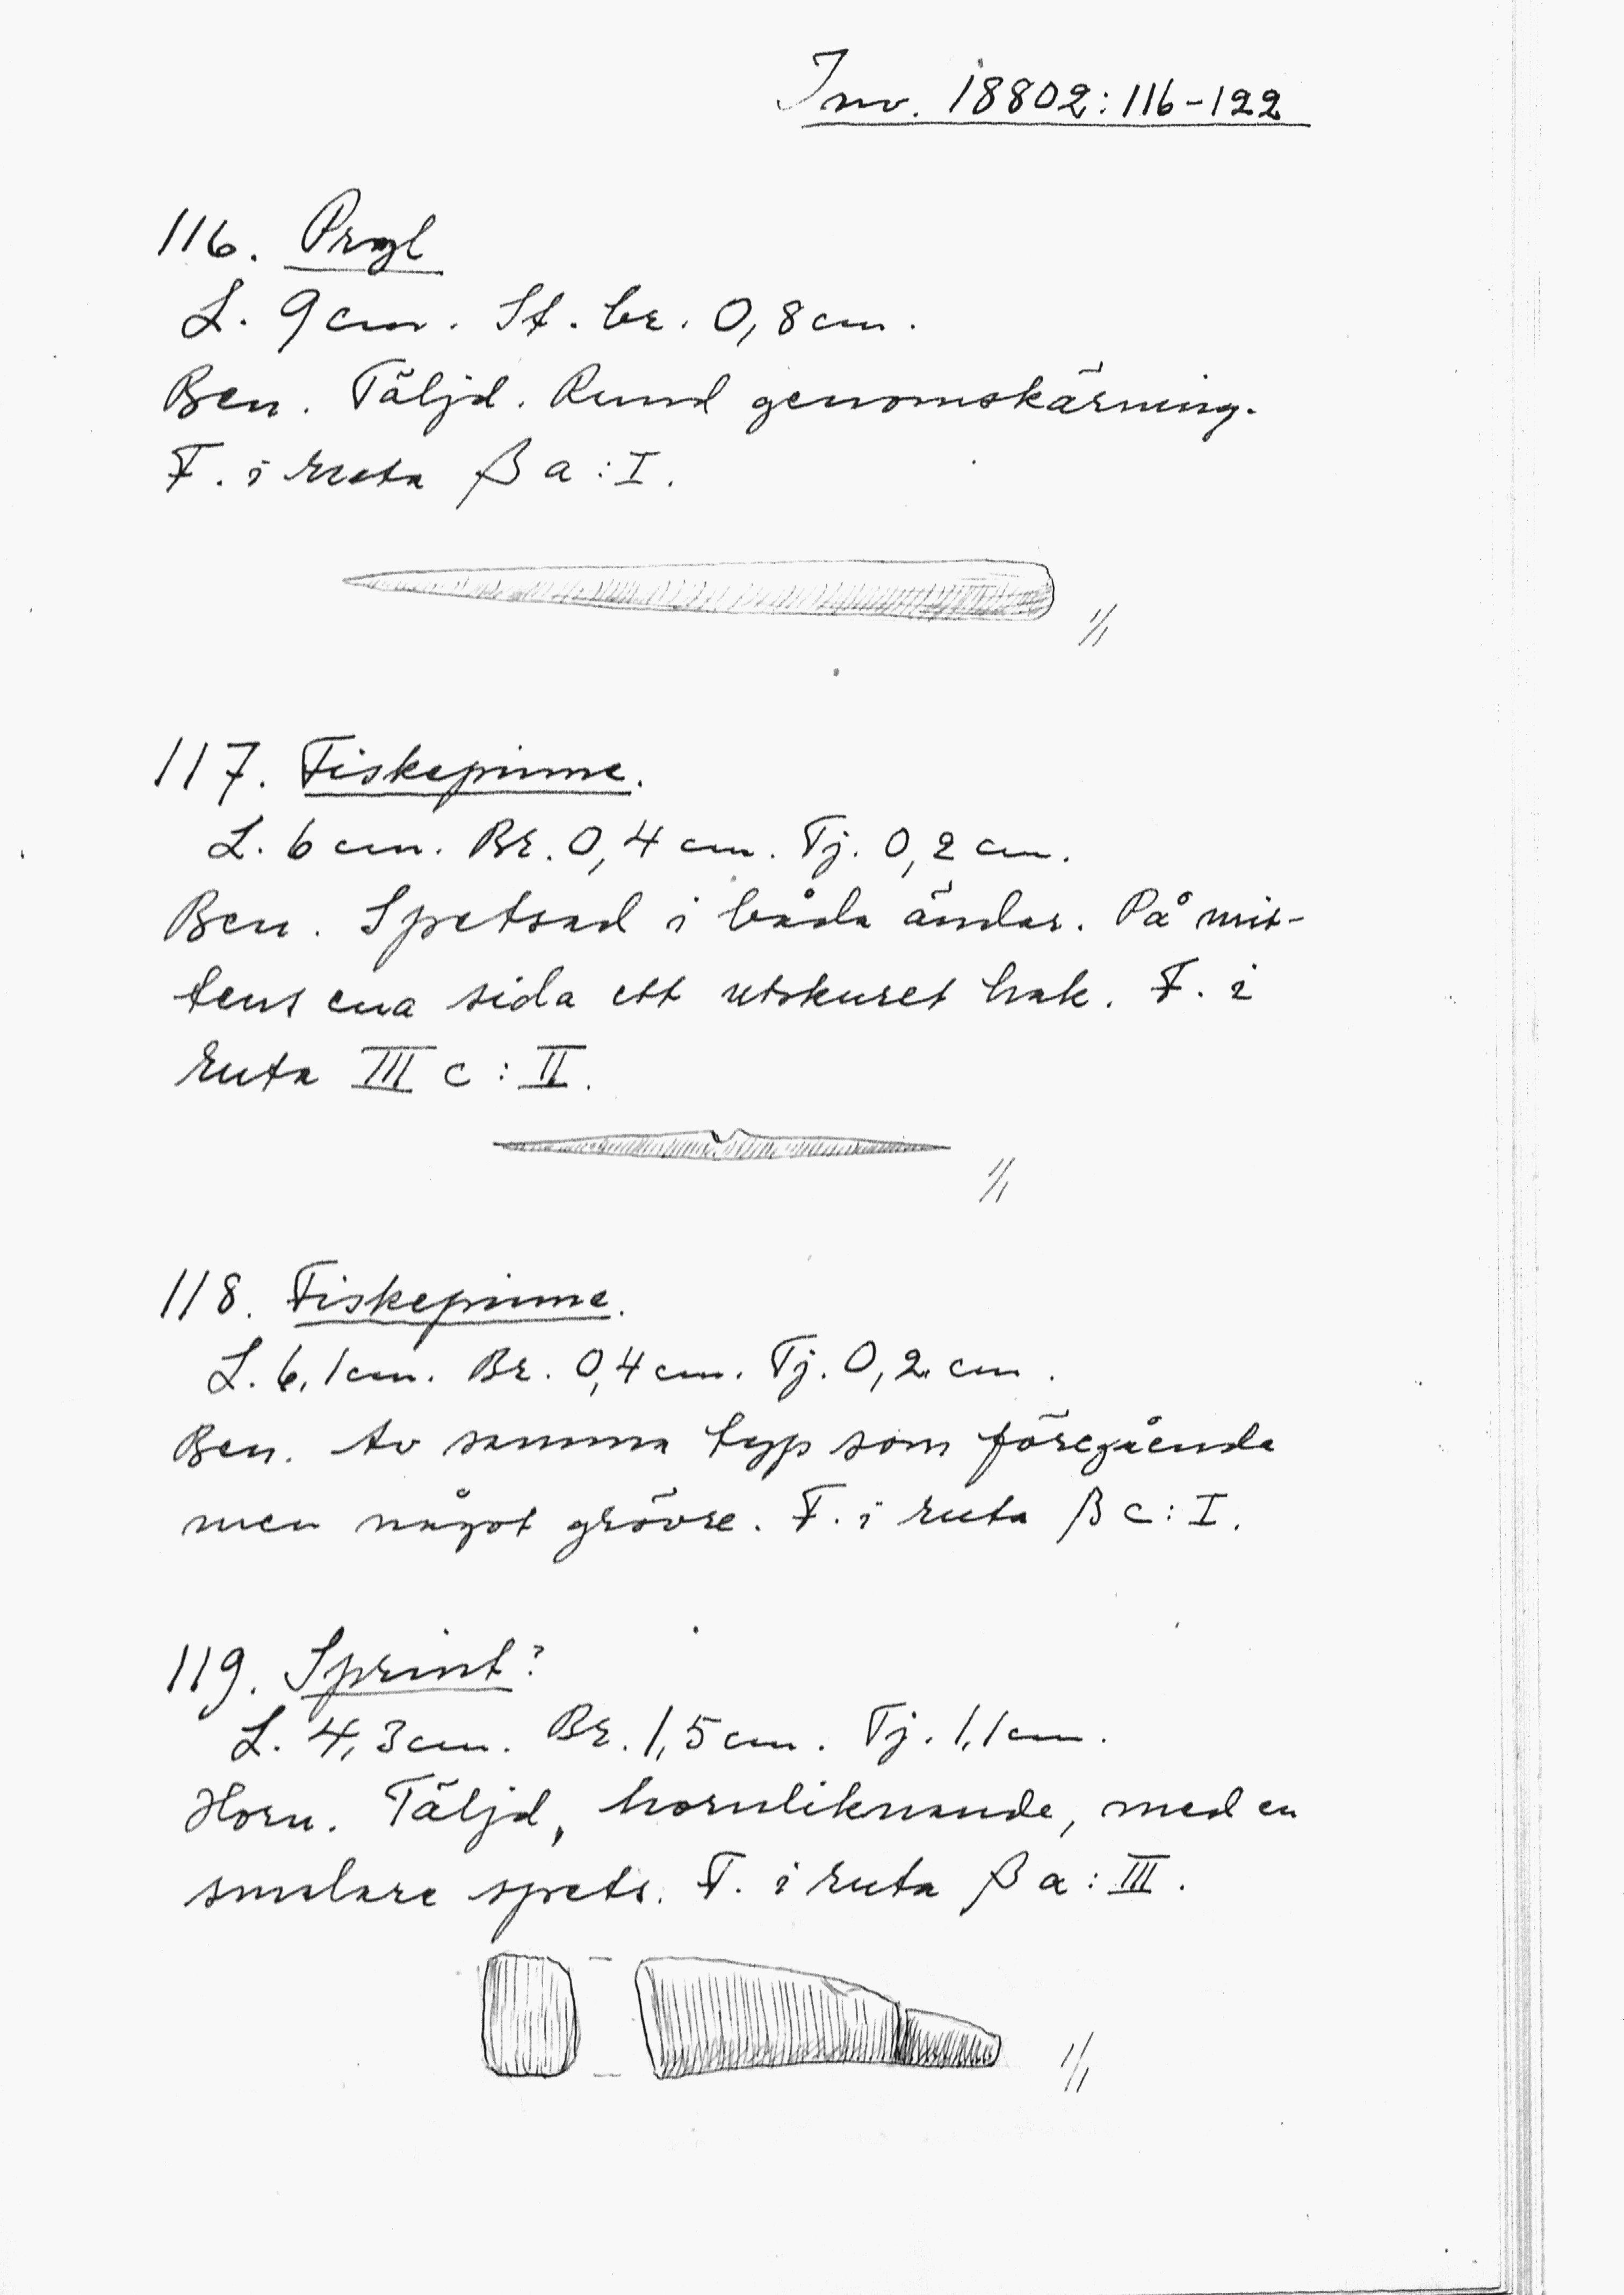 Inv. 18802:116-122
116. Pryl
L. 9 cm. St. br. 0,8 cm.
Ben. Täljd. Rund genomskärning.
F. i ruta β a : I.
1/1
117. Fiskepinne.
L. 6 cm. Br. 0,4 cm. Tj. 0,2 cm.
Ben. Spetsad i båda ändar. På mit-
tens ena sida ett utskuret hak. F. i
ruta III c : II.
1/1
118. Fiskepinne.
L. 6,1 cm. Br. 0,4 cm. Tj. 0,2 cm.
Ben. Av samma typ som föregående
men något grövre. F. i ruta β c : I.
119. Sprint?
L. 4,3 cm. Br. 1,5 cm. Tj. 1,1 cm.
Horn. Täljd, hornliknande, med en
smalare spets. F. i ruta β a : III.
1/1